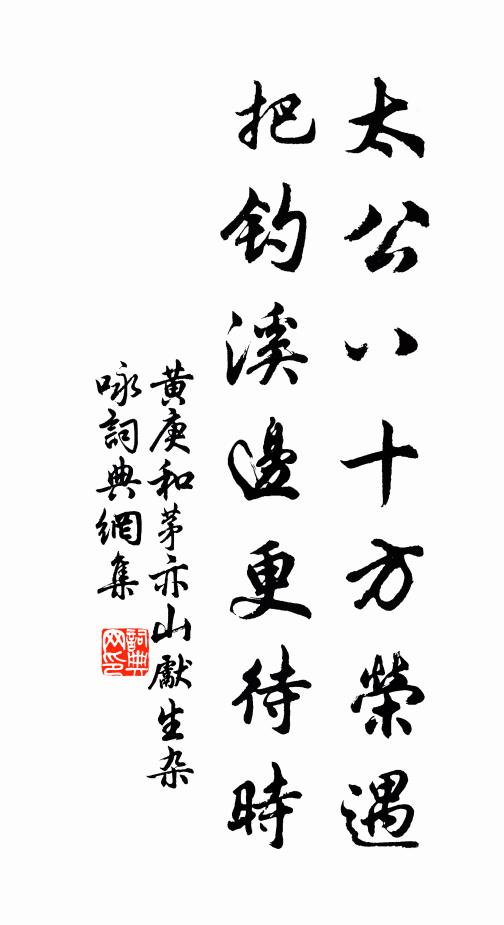 太公八十方榮遇
把釣溪邊更待時
黃庚和茅亦山獻生杂
咏詞典網集
詞典网印